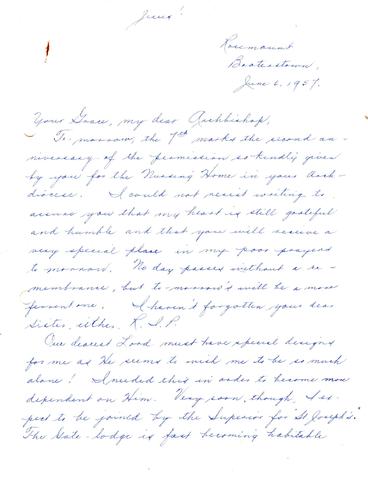 Jesus!
Rosemount
Booterstown,
June 6, 1957.
Your Grace, my dear Archbishop,
To-morrow, the 7th marks the second an-
niversary of the permission so kindly given
by you for the Nursing Home in your Arch-
diocese. I could not resist writing to
assure you that my heart is still grateful
and humble and that you will receive a
very special place in my poor prayers
to-morrow. No day passes without a re-
membrance, but to-morrow's will be a more
fervent one. I haven't forgotten your dear
Sister, either. R.I.P.
Our dearest Lord must have special designs
for me as He seems to wish me to be so much
alone! I needed this in order to become more
dependent on Him. Very soon, though, I ex-
pect to be joined by the Superior for St Joseph's.
The Gate-lodge is fast becoming habitable